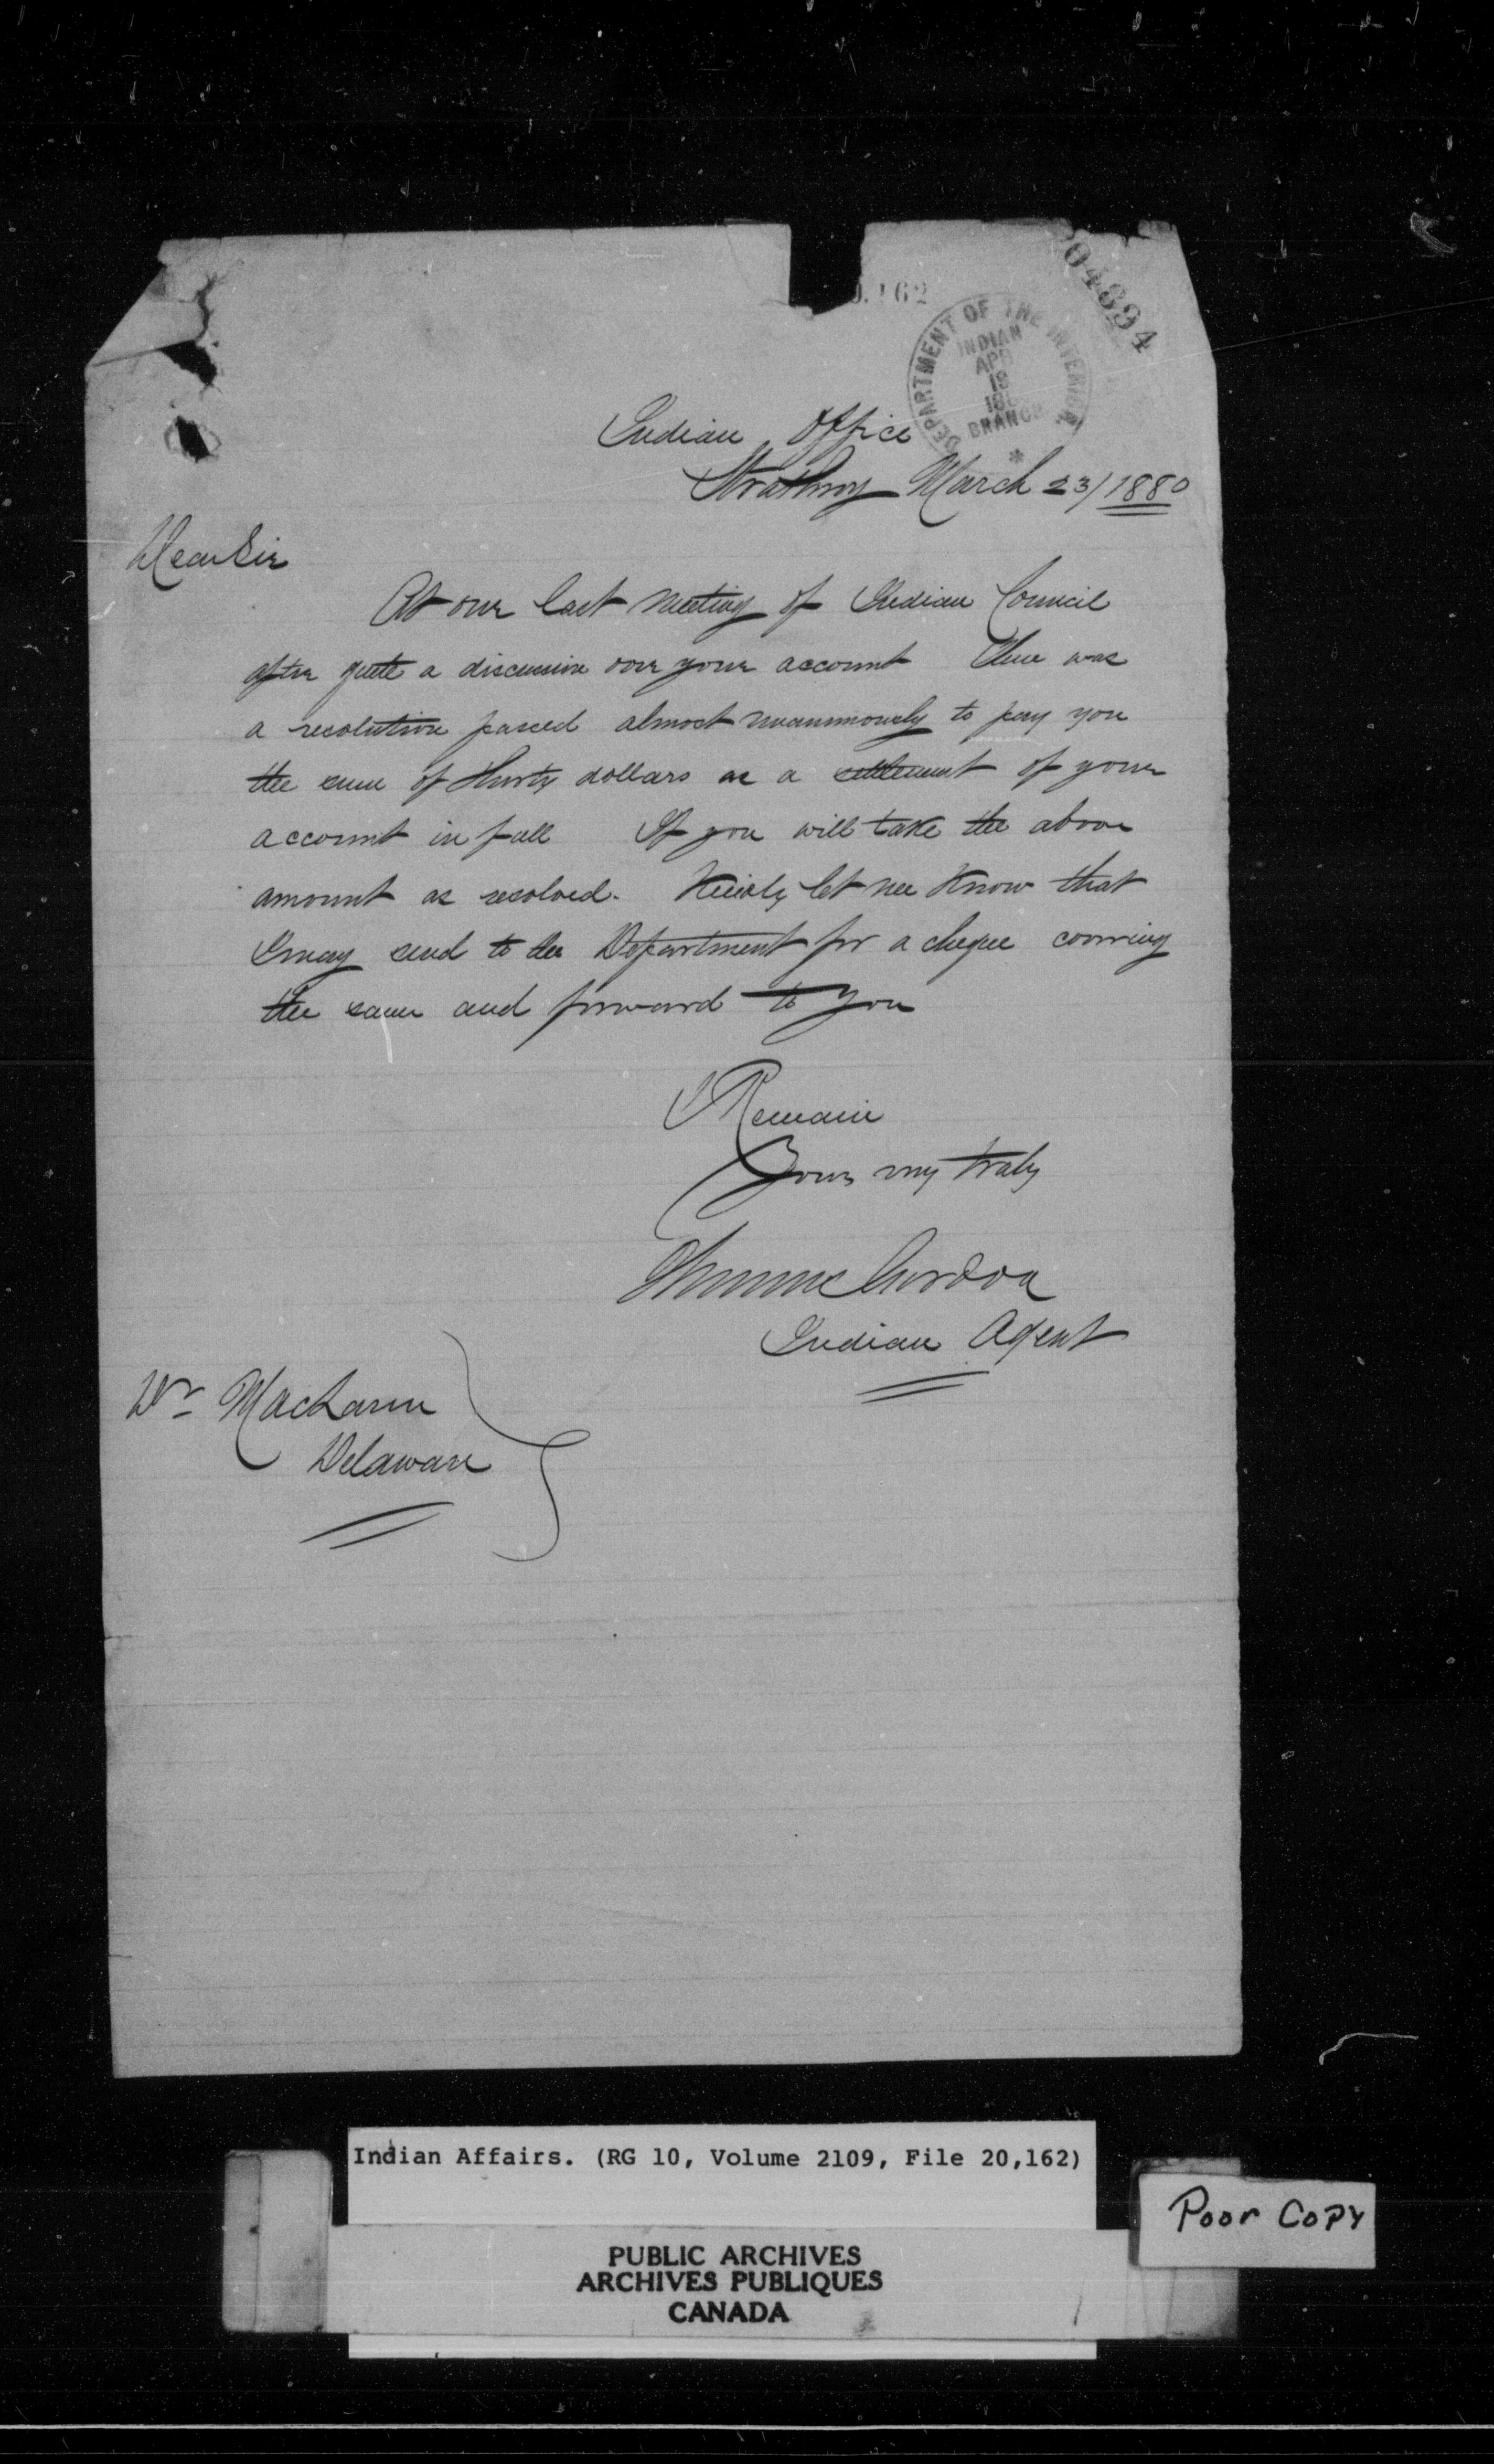 04894
0.162
DEPARTMENT OF THE INTERIOR
INDIAN
APR
19
188
BRANCH
Indian Office
Strathroy March 23/1880
Dear Sir
At our last meeting of Indian Council
after quite a discussion over your account there was
a resolution passed almost unanimously to pay you
the sum of thirty dollars as a settlement of your
account in full If you will take the above
amount as resolved. Kindly let me know that
I may send to the Department for a cheque covering
the same and forward to you
I Remain
Yours very truly
Thomas Gordon
Indian Agent
Dr MacLaren
Delaware
Indian Affairs. (RG 10, Volume 2109, File 20,162)
Poor Copy
PUBLIC ARCHIVES
ARCHIVES PUBLIQUES
CANADA